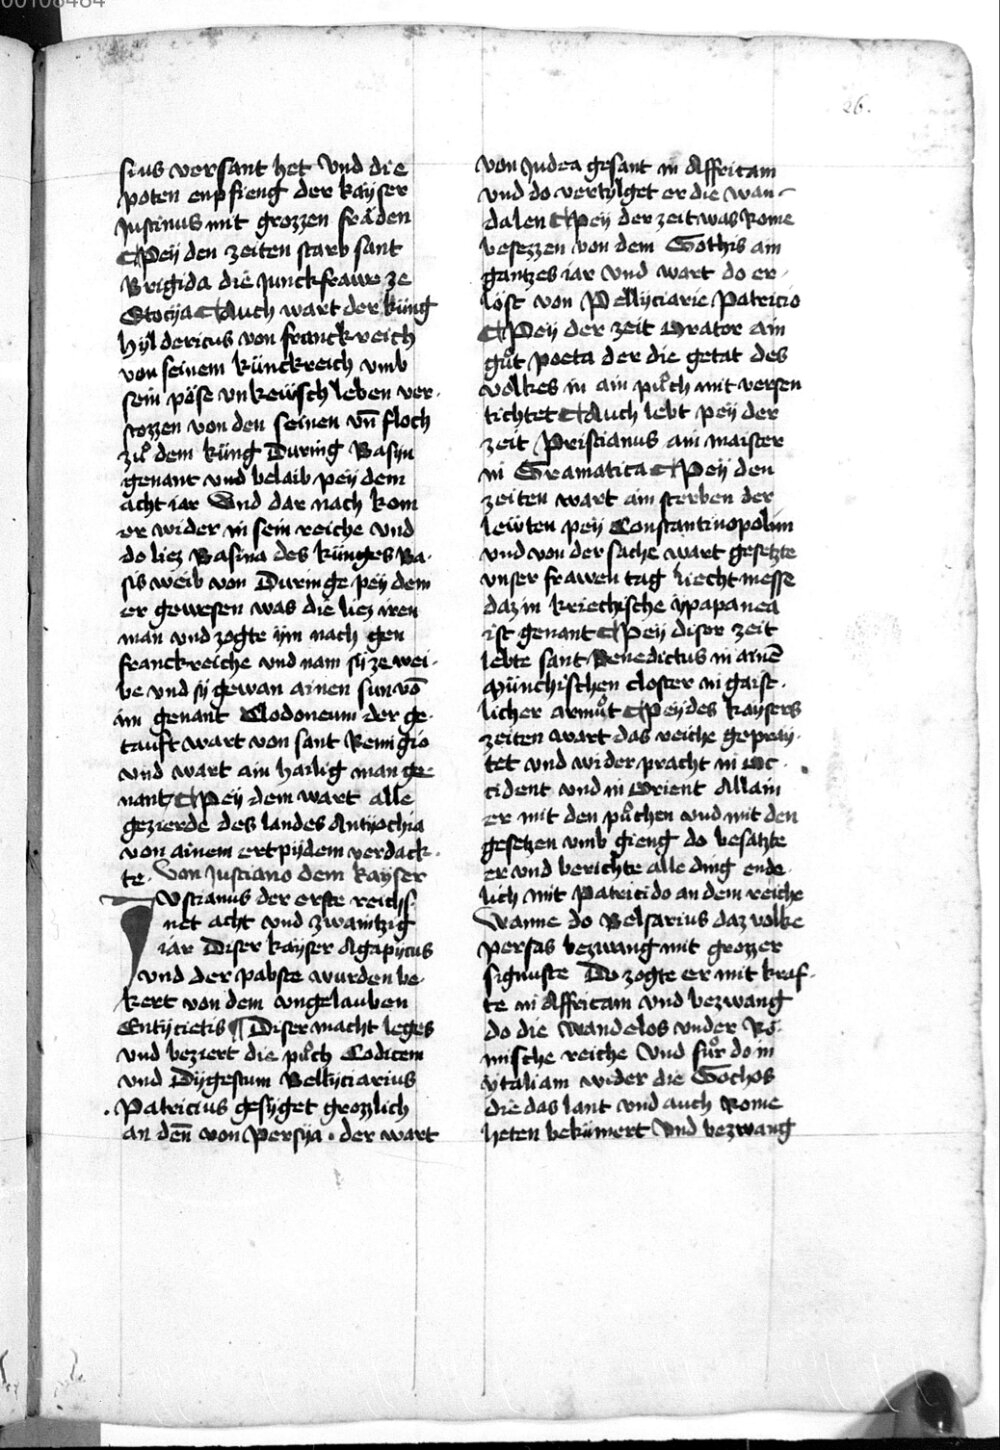 00108484
26.
sius versant het Vnd die
poten enpfieng der kayser
Justinus mit grozzen fräden
¶ Pey den zeiten starb sant
Brigida die Junckfrawe ze
Stocija ¶ Auch wart der küng
hyldericus von franckreich
von seinem künckreich vmb
sein pöse vnkewsch leben ver-
stozzen von den seinen vn̄ floch
zuͦ dem küng During Basyn
genant vnd belaib pey dem
acht iar Vnd dar nach kom
er wider in sein reiche vnd
do liez Basina des künges Ba-
sis weib von Duringe pey dem
er gewesen was die liez iren
man vnd zogte ym nach gen
franckreiche vnd nam sy ze wei-
be vnd sy gewan ainen sun vō
im genant Clodoneum der ge-
tauft wart von sant Remigio
vnd wart ain hailig man ge
nant ¶ Pey dem wart alle
gezierde des landes Antyochia
von ainem ertpydem verdack-
te. Von Justiano dem kayser
Justianus der erste reichs-
net acht vnd zwaintzig
iar Diser kayser Agapytus
vnd der pabste wurden be-
kert von dem vngelauben
Entycietis ¶ Diser macht leges
vnd beziert die puͦch Codicem
vnd Dygestum Bellyciarius
Patricius gesyget grozzlich
an den̄ von Persya. der wart
von Judea gesant in Affricam
vnd do vertylget er die wan-
dalen ¶ Pey der zeit was Rome
besezzen von dem Gothis ain
gantzes iar vnd wart do er-
löst von Pellyciarie Patricio
¶ Pey der zeit Orator ain
guͦt poeta der die getat des
volkes in ain puͦch mit versen
tichtet ¶ Auch lebt pey der
zeit Priscianus ain maister
in Gramatica ¶ Pey den
zeiten wart ain sterben der
lewten pey Constantinopolim
vnd von der sache wart gesetzte
vnser frawen tag liechtmesse
daz in kriechische ypapanea
ist genant ¶ Pey diser zeit
lebte sant Benedictus in ainē
münchischen closter in gaist-
licher armuͦt ¶ Pey des kaysers
zeiten wart das reiche gepray-
tet vnd wider pracht in Oc-
cident vnd in Orient Allain
er mit den puͦchen vnd mit den
gesetzen vmb gieng do besatzte
er vnd berichte alle ding ende-
lich mit Patricido an dem reiche
Wanne do Belsarius daz volke
Persas bezwang mit grozzer
signuste Do zogte er mit kraf-
te in Affricam vnd bezwang
do die wandelos vnder Rö-
mische reiche Vnd fuͦr do in
ytaliam wider die Gothos
die das lant vnd auch Rome
heten bekümert Vnd bezwang